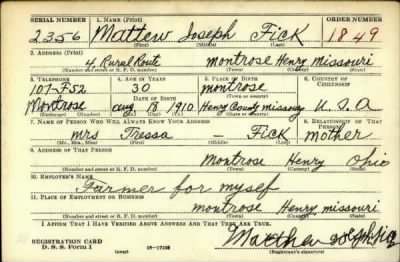 SERIAL NUMBER 1. NAME (Print) ORDER NUMBER
2356 Mattew Joseph Fick 1849
(First) (Middle) (Last)
2. ADDRESS (Print)
4 Rural Route Montrose Henry Missouri
(Number and street or R. F. D. number) (Town) (County) (State)
3. TELEPHONE 4. AGE IN YEARS 5. PLACE OF BIRTH 6. COUNTRY OF CITIZENSHIP
107-F52 30 Montrose
DATE OF BIRTH (Town or county)
Montrose Aug 18 1910 Henry County Missouri U.S.A
(Exchange) (Number) (Mo.) (Day) (Yr.) (State or country)
7. NAME OF PERSON WHO WILL ALWAYS KNOW YOUR ADDRESS 8. RELATIONSHIP OF THAT PERSON
Mrs Tressa - Fick Mother
(Mr., Mrs., Miss) (First) (Middle) (Last)
9. ADDRESS OF THAT PERSON
Montrose Henry Ohio
(Number and street or R. F. D. number) (Town) (County) (State)
10. EMPLOYER'S NAME
Farmer for myself
11. PLACE OF EMPLOYMENT OR BUSINESS
Montrose Henry Missouri
(Number and street or R. F. D. number) (Town) (County) (State)
I AFFIRM THAT I HAVE VERIFIED ABOVE ANSWERS AND THAT THEY ARE TRUE.
REGISTRATION CARD
D. S. S. Form 1 (over) 16-17105 Matthew Joseph Fick